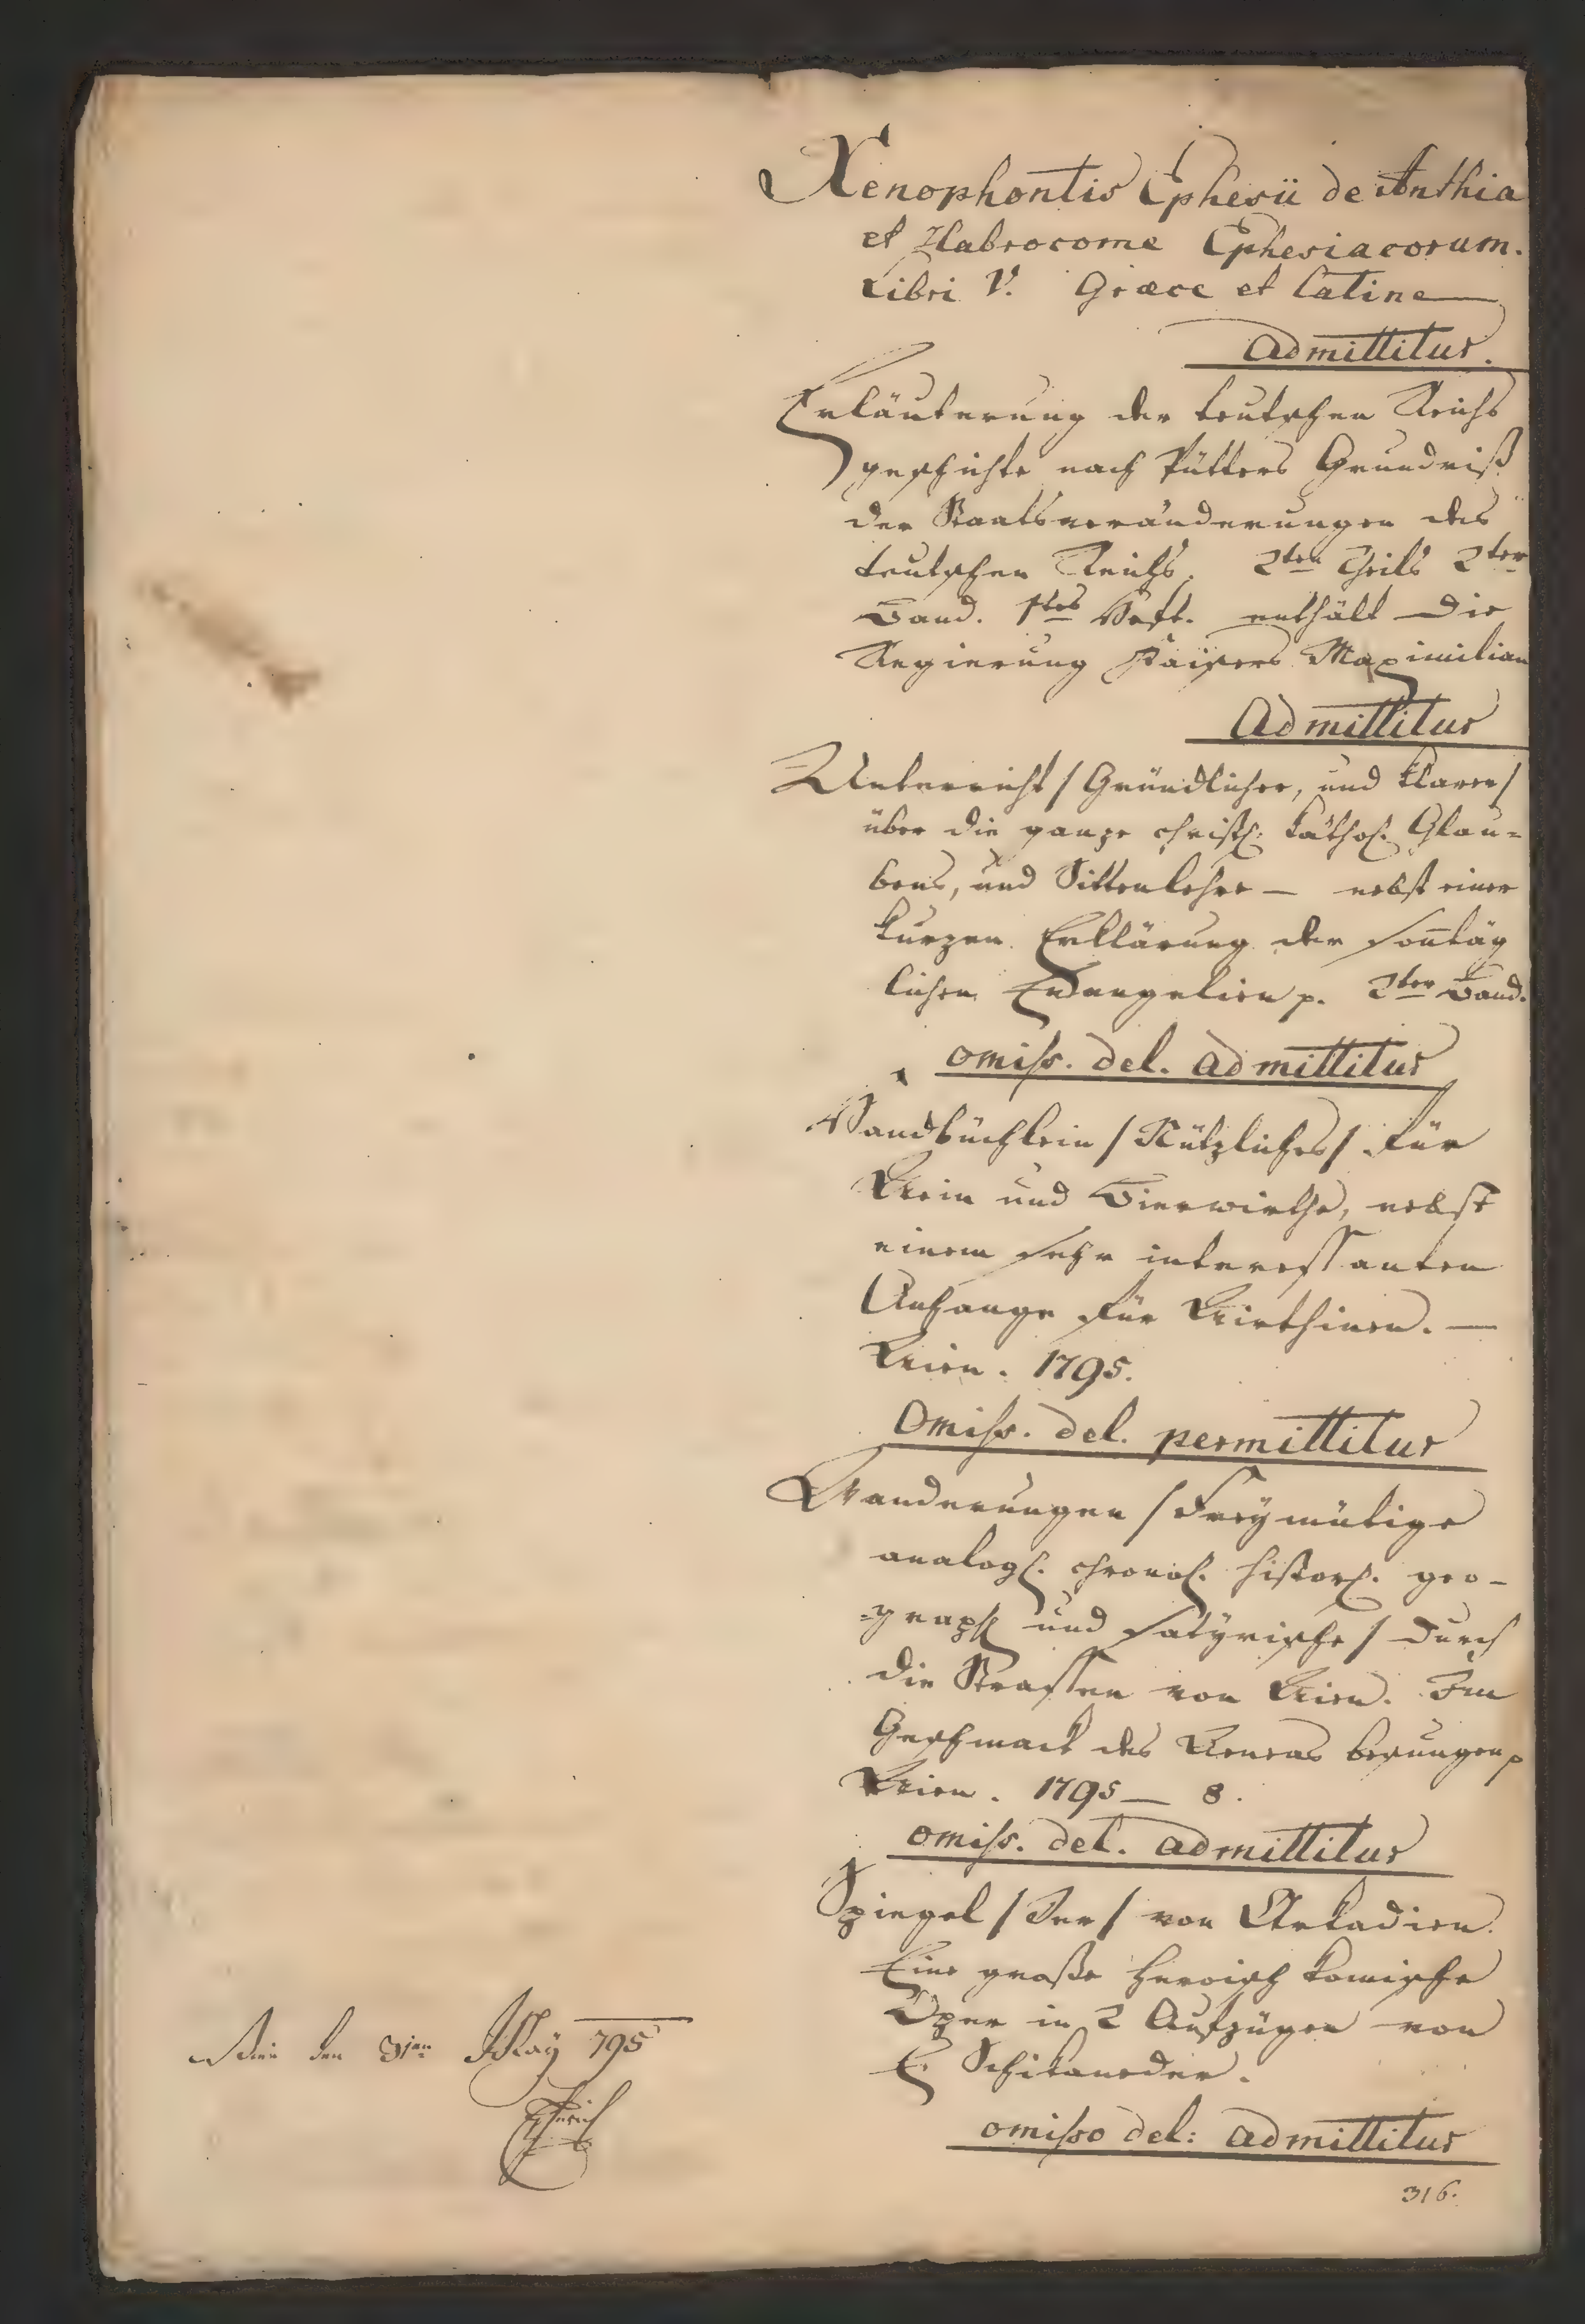 Xenophontis Ephesii de Anthia
et Habrocome Ephesiacorum.
Libri V. Græce et Latine —
Admittitur.
Erläuterung der teutschen Reichs
geschichte nach Pütters Grundriß
der Staatsveränderungen des
teutschen Reichs. 2ten Theils 2ter
Band. 1tes Heft. enthält die
Regierung Kaisers Maximilian
Admittitur
Unterricht / Gründlicher, und klarer /
über die ganze christl. kathol. Glau=
bens, und Sittenlehre — nebst einer
kurzen Erklärung der soñtäg
lichen Evangelien p. 2ter Band.
omiss. del. admittitur
Handbüchlein / Nützliches / für
Wein und Bierwirthe, nebst
einem sehr interessanten
Anhange für Wirthinen. —
Wien. 1795.
Omiss. del. permittitur
Wanderungen / Freymütige
analogl. chronol. historl. geo-
=graphl und satyrische / durch
die Strassen von Wien. Im
Geschmack des Aeneas besungen p
Wien. 1795 — 8.
omiss. del. admittitur
Spiegel / Der / von Arkadien.
Eine große heroisch komische
Oper in 2 Aufzügen von
E. Schikaneder.
omisso del: admittitur
316.
Wien den 31ten May 795